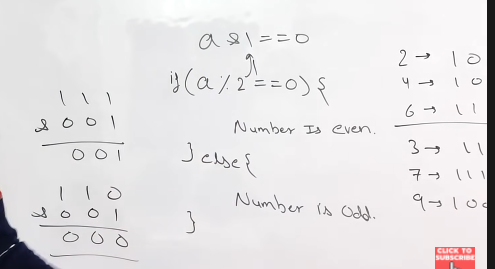 a & 1 == 0
if (a % 2 == 0) {
Number Is even.
} else {
Number is Odd.
}
1 1 1
& 0 0 1
0 0 1
1 1 0
& 0 0 1
0 0 0
2 → 1 0
4 → 1 0
6 → 1 1
3 → 1 1
7 → 1 1 1
9 → 1 0 0
CLICK TO
SUBSCRIBE